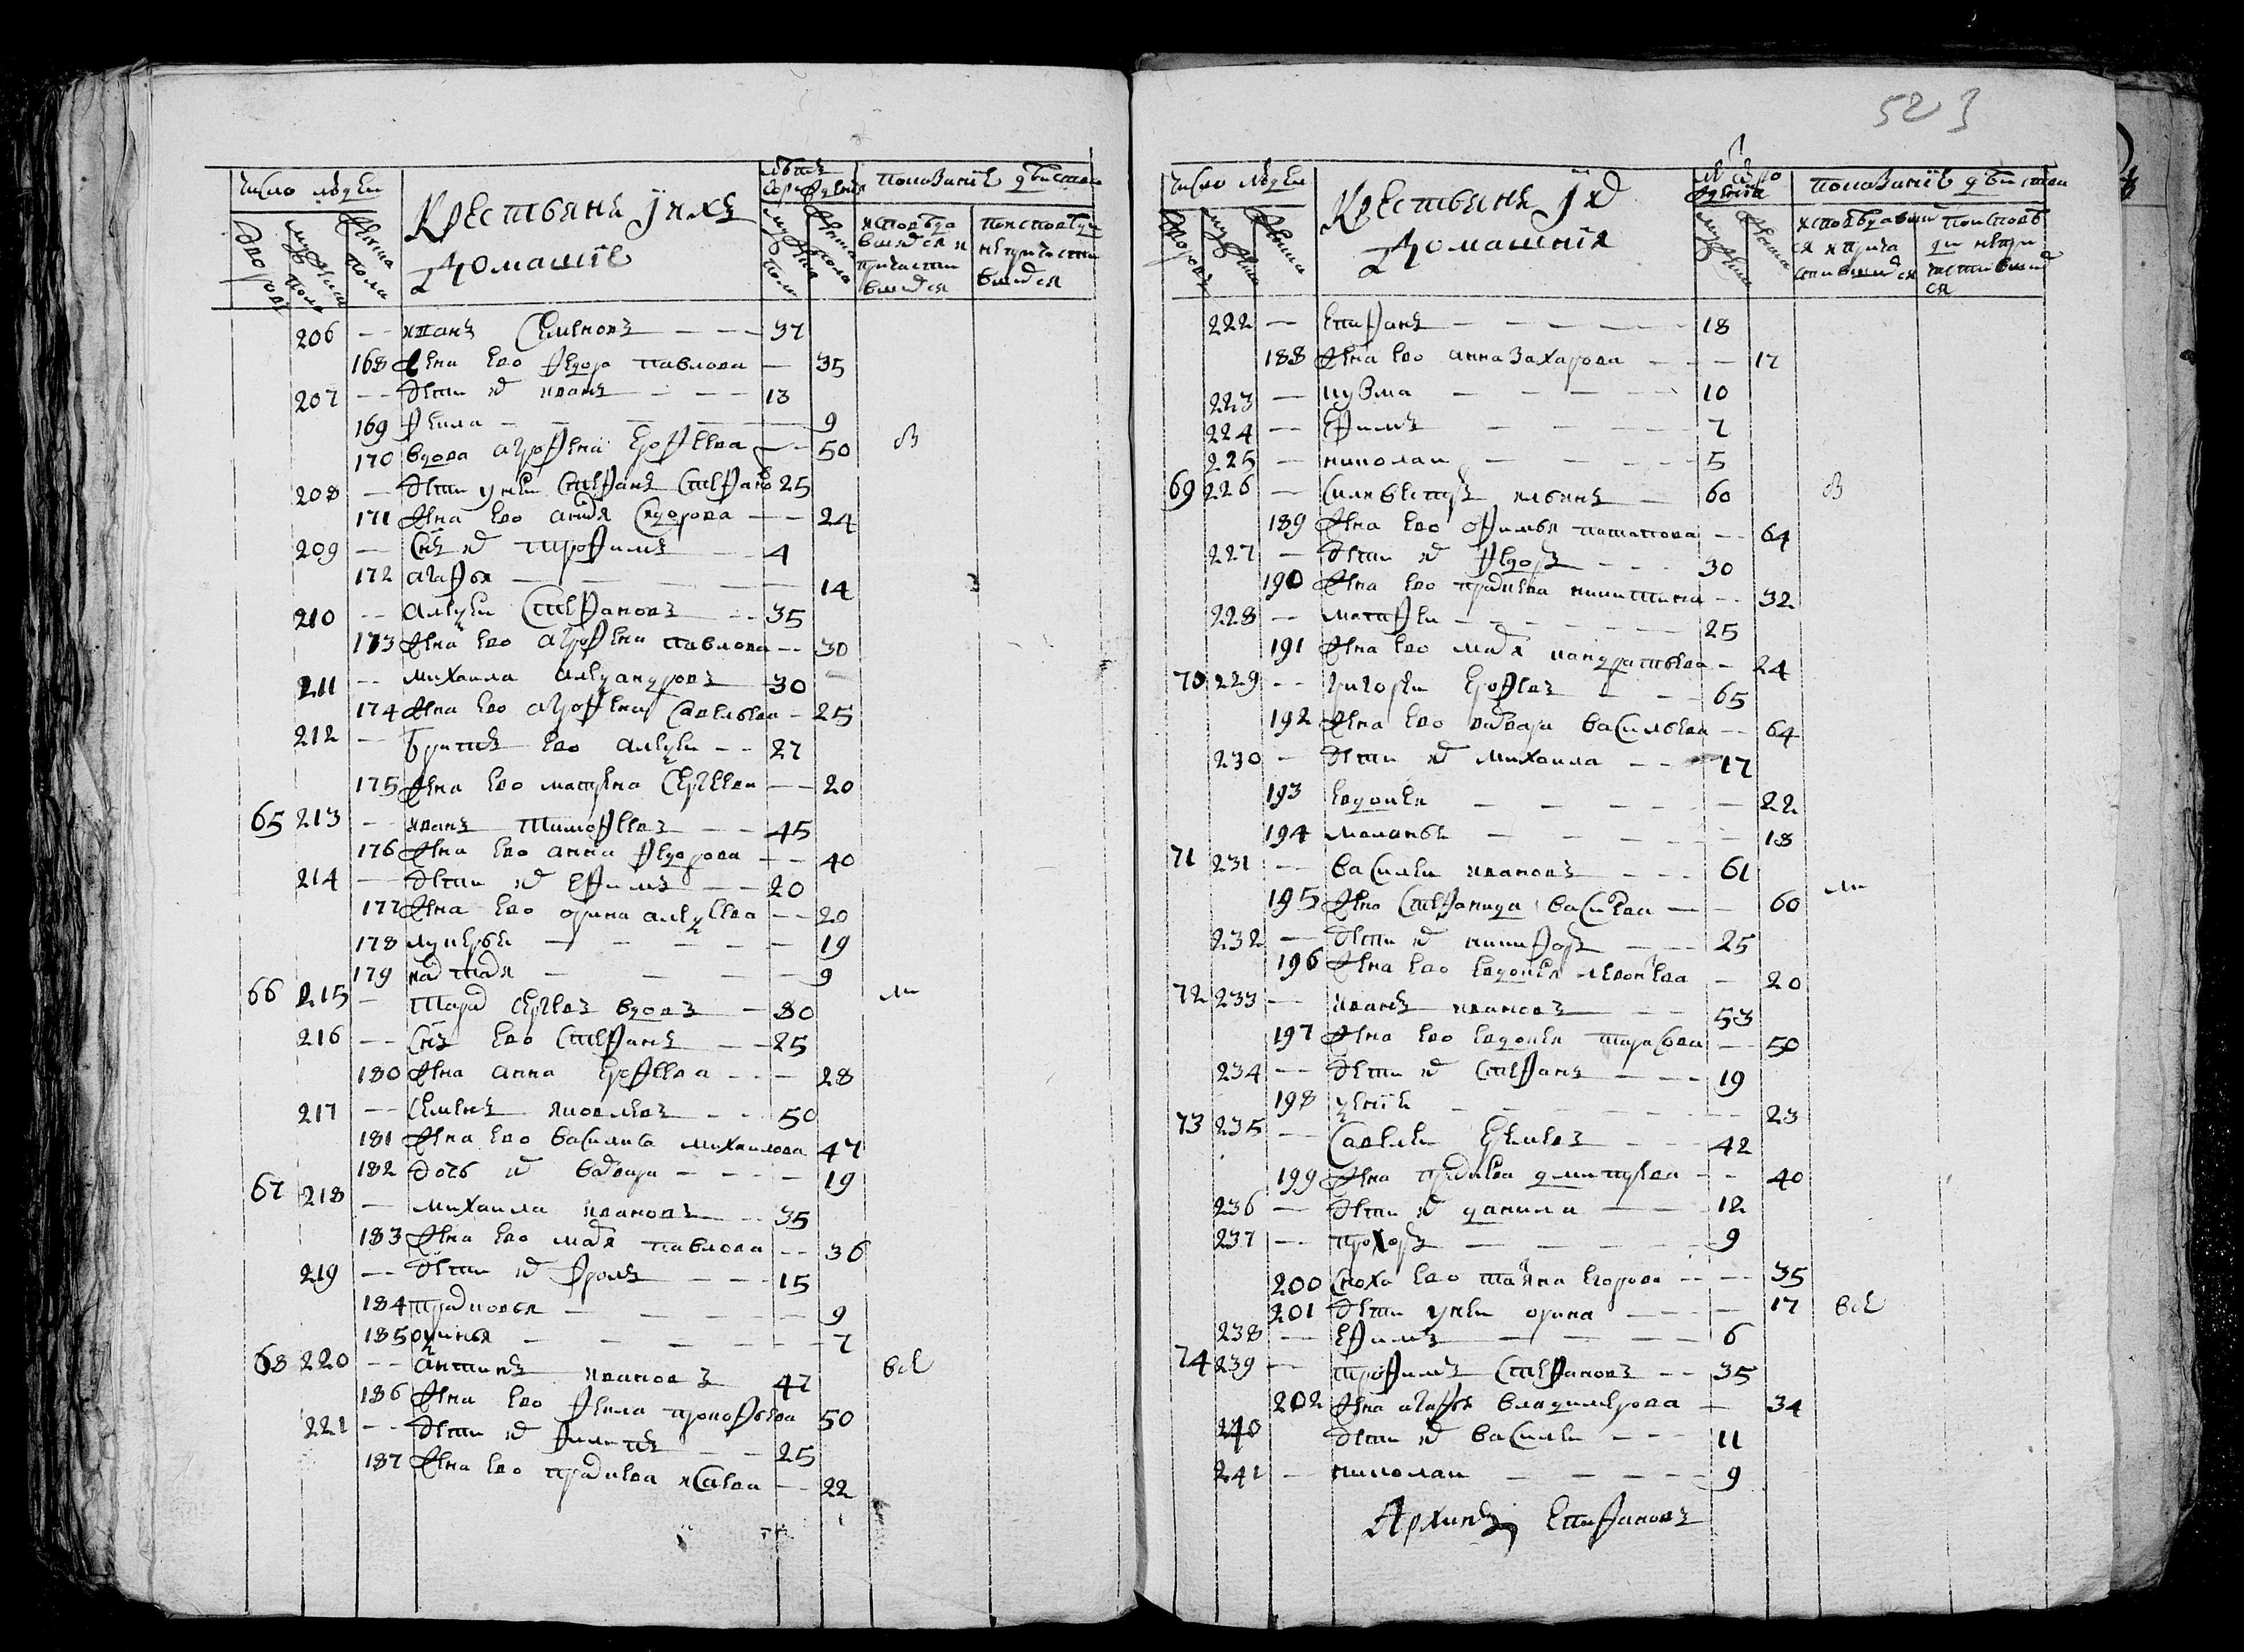 число людеи
дворовъ
мужеска полу
женска пола
Крестьяне и ихъ
домашние
лѣтъ от рождения
мужеска полу
женска пола
показание действа
исповѣдавшихся и причастившихся
по исповеди не причастившихся
206 — иванъ Семеновъ — 37
168 жена ево федора павлова — 35
207 — дети их иванъ — 13
169 фекла — 9
170 вдова агрофена ерофеева — 50
208 — дети у неи Стефанъ Стефано 25
171 жена ево анисия Сидорова — 24
209 — Снъ их трофимъ — 4
172 агафья — 14
210 — алеѯеи Стефановъ — 35
173 жена ево агрофена павлова — 30
211 — михаила алеѯандровъ — 30
174 жена ево агрофена Савельева — 25
212 — братъ ево алеѯеи — 27
175 жена ево матрена Сергеева — 20
65 213 — иванъ тимофеевъ — 45
176 жена ево анна федорова — 40
214 — дети их ефимъ — 20
177 жена ево орина алеѯеева — 20
178 лукерья — 19
179 настасия — 9
66 215 — тарас Сергеевъ вдовъ — 80
216 — Снъ ево Стефанъ — 25
180 жена анна ерофеева — 28
217 — Семенъ яковлевъ — 50
181 жена ево василиса михаилова 47
182 дочь их варвара — 19
67 218 — михаила ивановъ — 35
183 жена ево мария павлова — 36
219 — дети их фролъ — 15
184 прасковья — 9
185 оѯинья — 7
68 220 — антипъ ивановъ 47
186 жена ево фекла прокофьева 50
221 — дети их филипъ — 25
187 жена ево прасковья исаева — 22
523
число людеи
дворовъ
мужеска
женска
Крестьяне и их
домашния
лѣт от рождения
мужеска
женска
показание действа
исповѣдавшихся и причастившихся
по исповѣди не причастившихся
222 — епифанъ — 18
188 жена ево анна захарова — 17
223 — кузма — 10
224 — ефимъ — 7
225 — николаи — 5
69 226 — Силивестръ ильинъ — 60
189 жена ево офимья патапова — 64
227 — дети их федоръ — 30
190 жена ево прасковья никитина — 32
228 — матфеи — 25
191 жена ево мария кандратьева — 24
70 229 — григореи ерофеевъ — 65
192 жена ево варвара васильева — 64
230 — дети их михаила — 17
193 евдокея — 22
194 маланья — 18
71 231 — василеи ивановъ — 61
195 жена Стефанида васильева — 60
232 — дети их никифоръ — 25
196 жена ево евдокея леонтева — 20
72 233 — иванъ ивановъ — 53
197 жена ево евдокея тарасова — 50
234 — дети их Стефанъ — 19
198 ѯения — 23
73 235 — Савелеи еремевъ — 42
199 жена прасковья дмитрева — 40
236 — дети их данила — 12
237 — прохоръ — 9
200 Сноха ево татияна егорова — 35
201 дети у неи орина — 17
238 — ефимъ — 6
74 239 — трофимъ Стефановъ — 35
202 жена агафья владимерова — 34
240 дети их василеи — 11
241 — николаи — 9
Архипъ Епифановъ